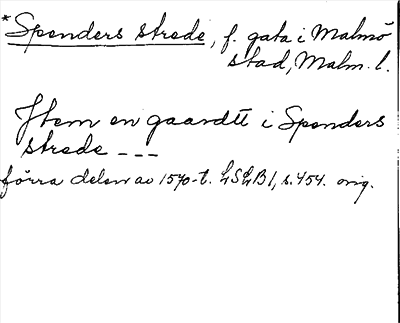 *Spenders strede, f. gata i Malmö
stad, Malm. l.
Jtem en gaardtt i Spenders
strede ---
förra delen av 1570-t. LSLB1, s. 454. orig.